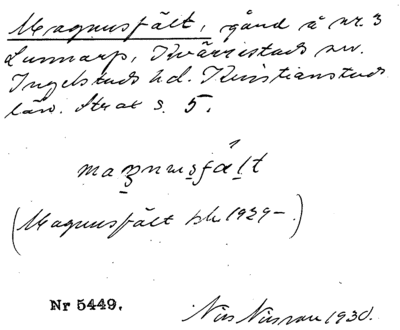 Magnusfält, gård å nr. 3
Lunnarp, Kvärrestads sn.
Ingelstads hd. Kristianstads
län. Strax s. 5.
maznusfält
(Magnusfält jrb 1929–.)
Nr 5449.
Nils Nilsson 1930.